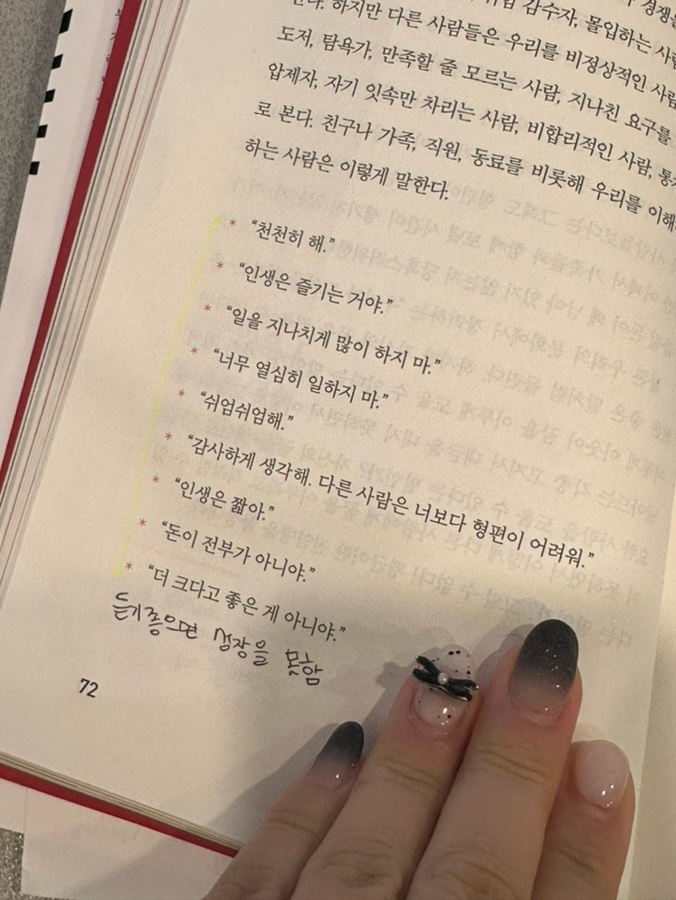 감수자, 몰입하는
하지만 다른 사람들은 우리를 비정상적인
도저, 탐욕가, 만족할 줄 모르는 사람, 지나친 요구를
압제자, 자기 잇속만 차리는 사람, 비합리적인 사람,
로 본다. 친구나 가족, 직원, 동료를 비롯해 우리를
하는 사람은 이렇게 말한다.
* “천천히 해.”
* “인생은 즐기는 거야.”
* “일을 지나치게 많이 하지 마.”
* “너무 열심히 일하지 마.”
* “쉬엄쉬엄해.”
* “감사하게 생각해. 다른 사람은 너보다 형편이 어려워.”
* “인생은 짧아.”
* “돈이 전부가 아니야.”
* “더 크다고 좋은 게 아니야.”
듣기좋으면 성장을 못함
72